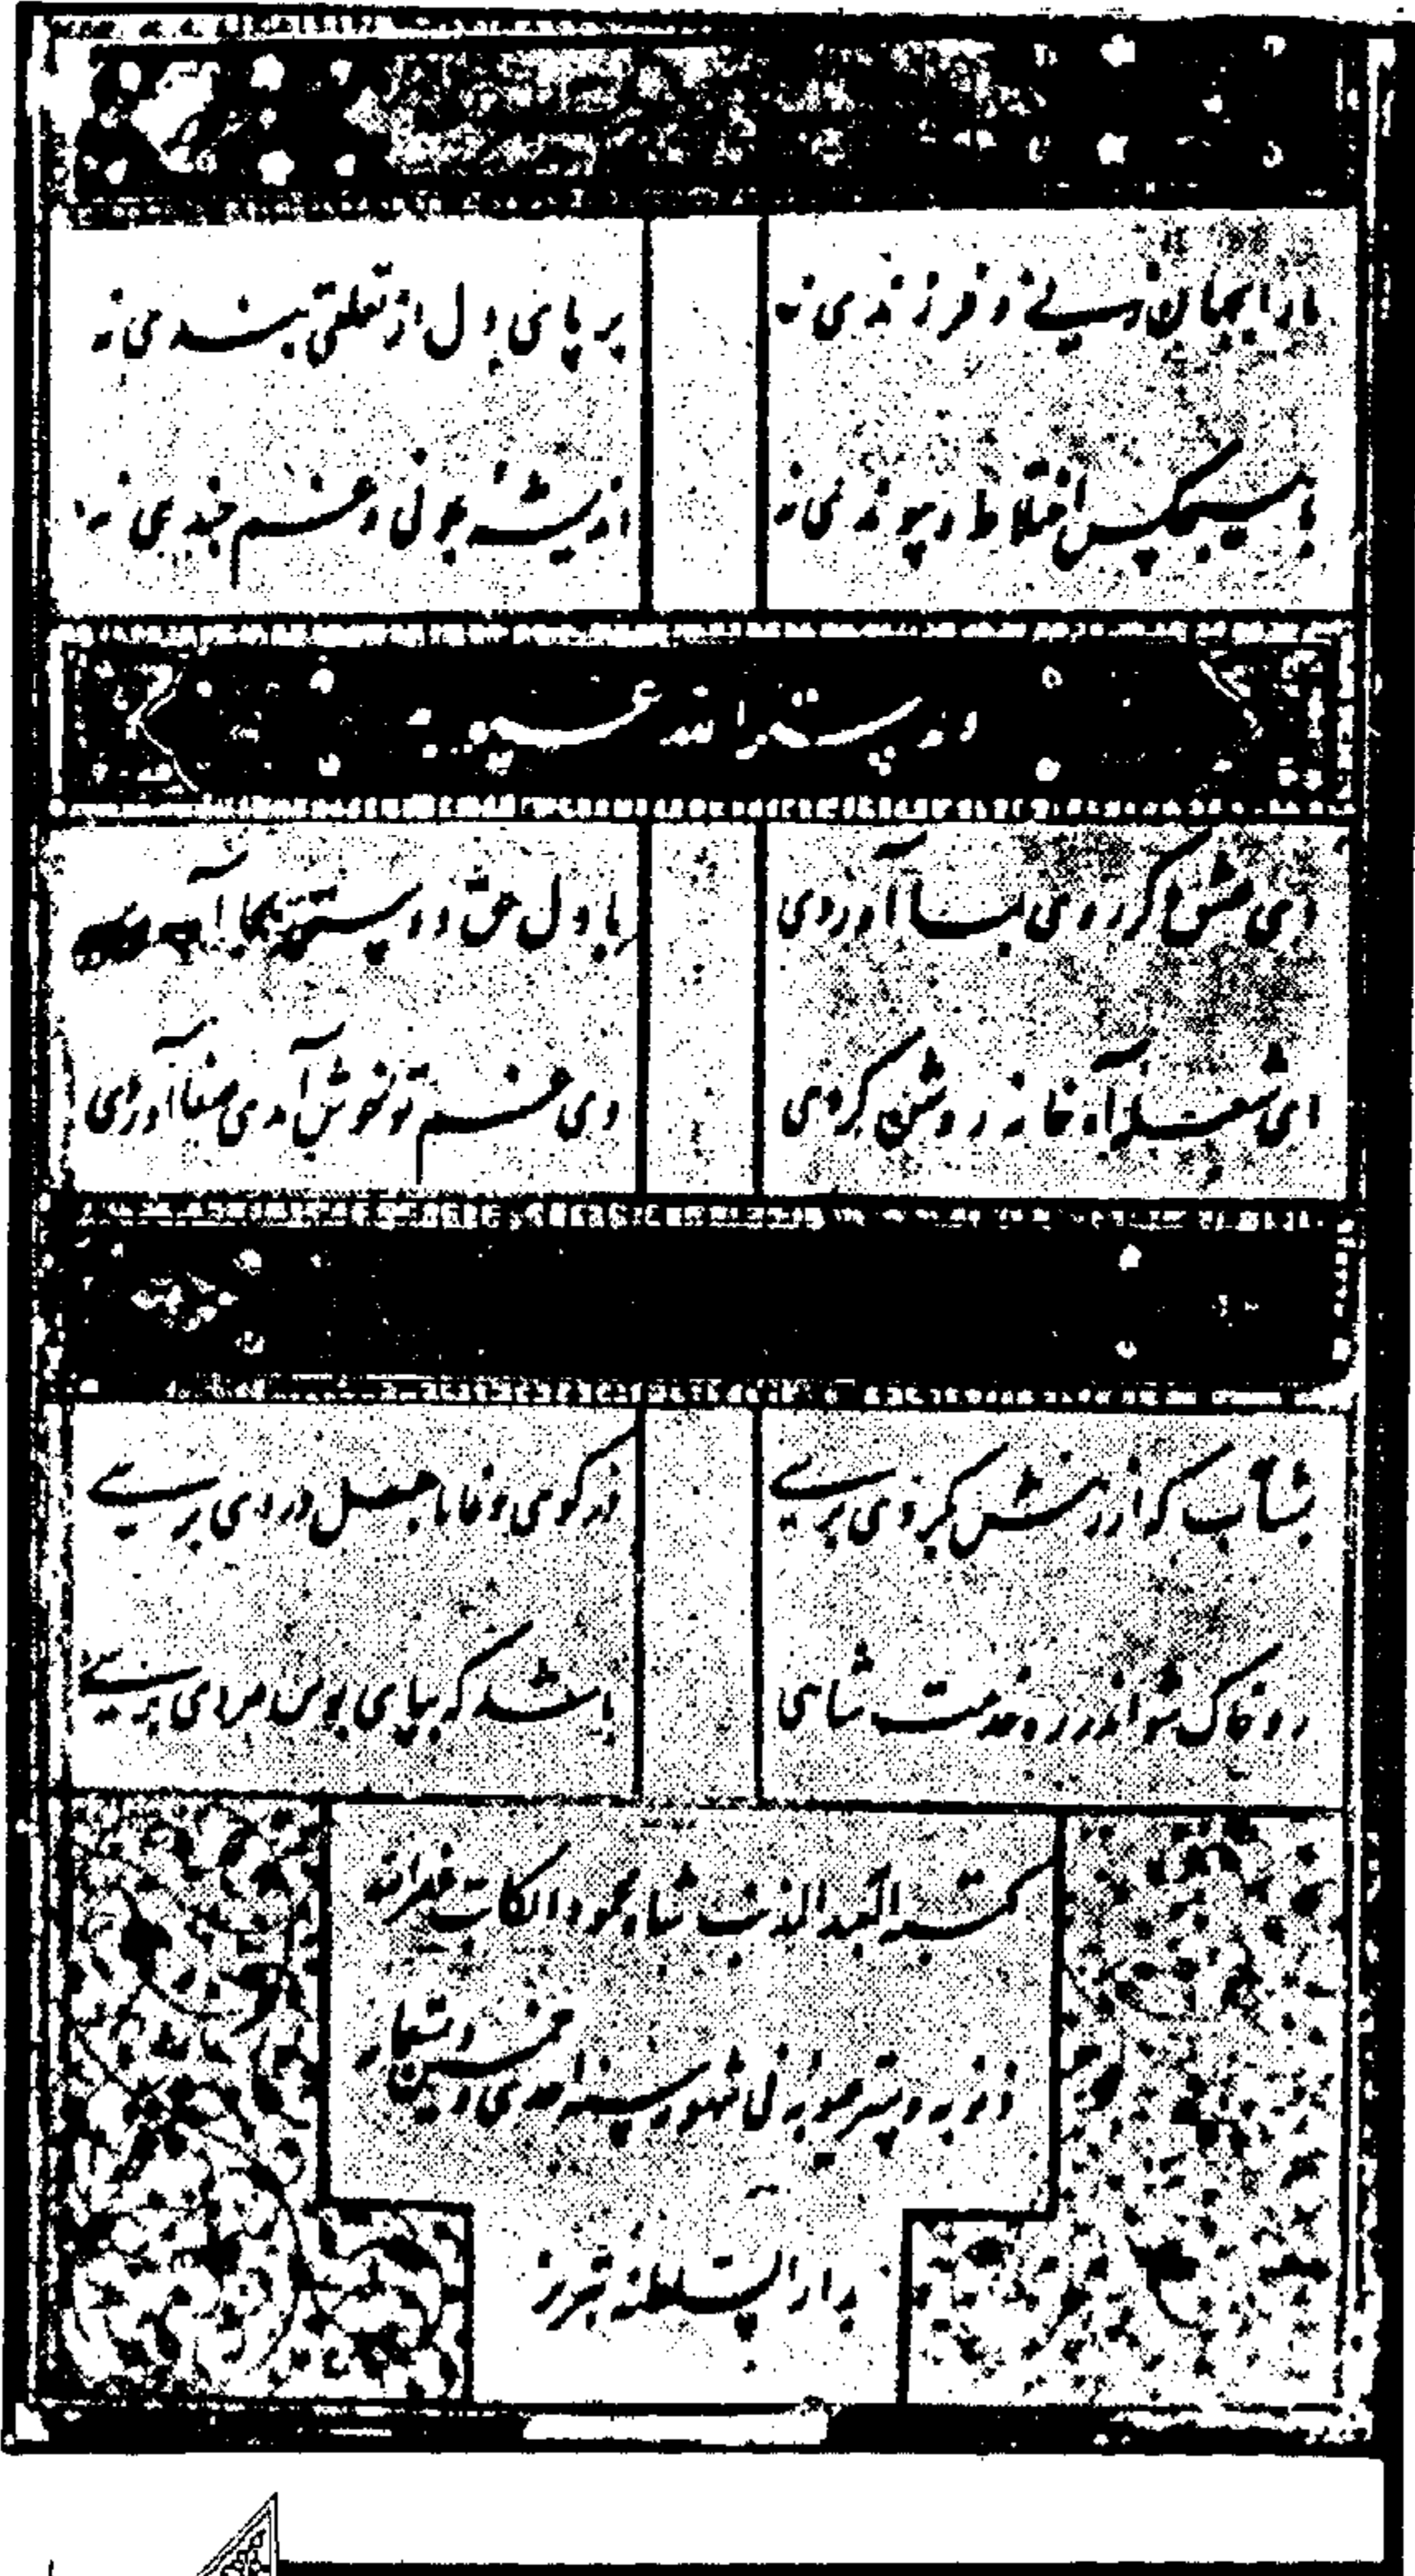 ما را بجهان زنی و فرزندی نه
بر پای دل از تعلقی بندی نه
با هیچکس اختلاط و پیوندی نه
اندیشهٔ چونی و غم چندی نه
ای عشق دگر روی بما آوردی
با دل حق دوستی بجا آوردی
ای شعلهٔ آه خانه روشن کردی
وی غم تو خوش آمدی صفا آوردی
بشتاب که از رهش بگردی برسی
وز کوی وفا باهل دردی برسی
رو خاک شو اندر ره خدمت شاهی
باشد که بپای بوس مردی برسی
کتبه العبد المذنب شاه محمود الکاتب غفر الله
ذنوبه و ستر عیوبه فی شهور سنه احدی و خمسین و تسعمایه
بدار السلطنه تبریز